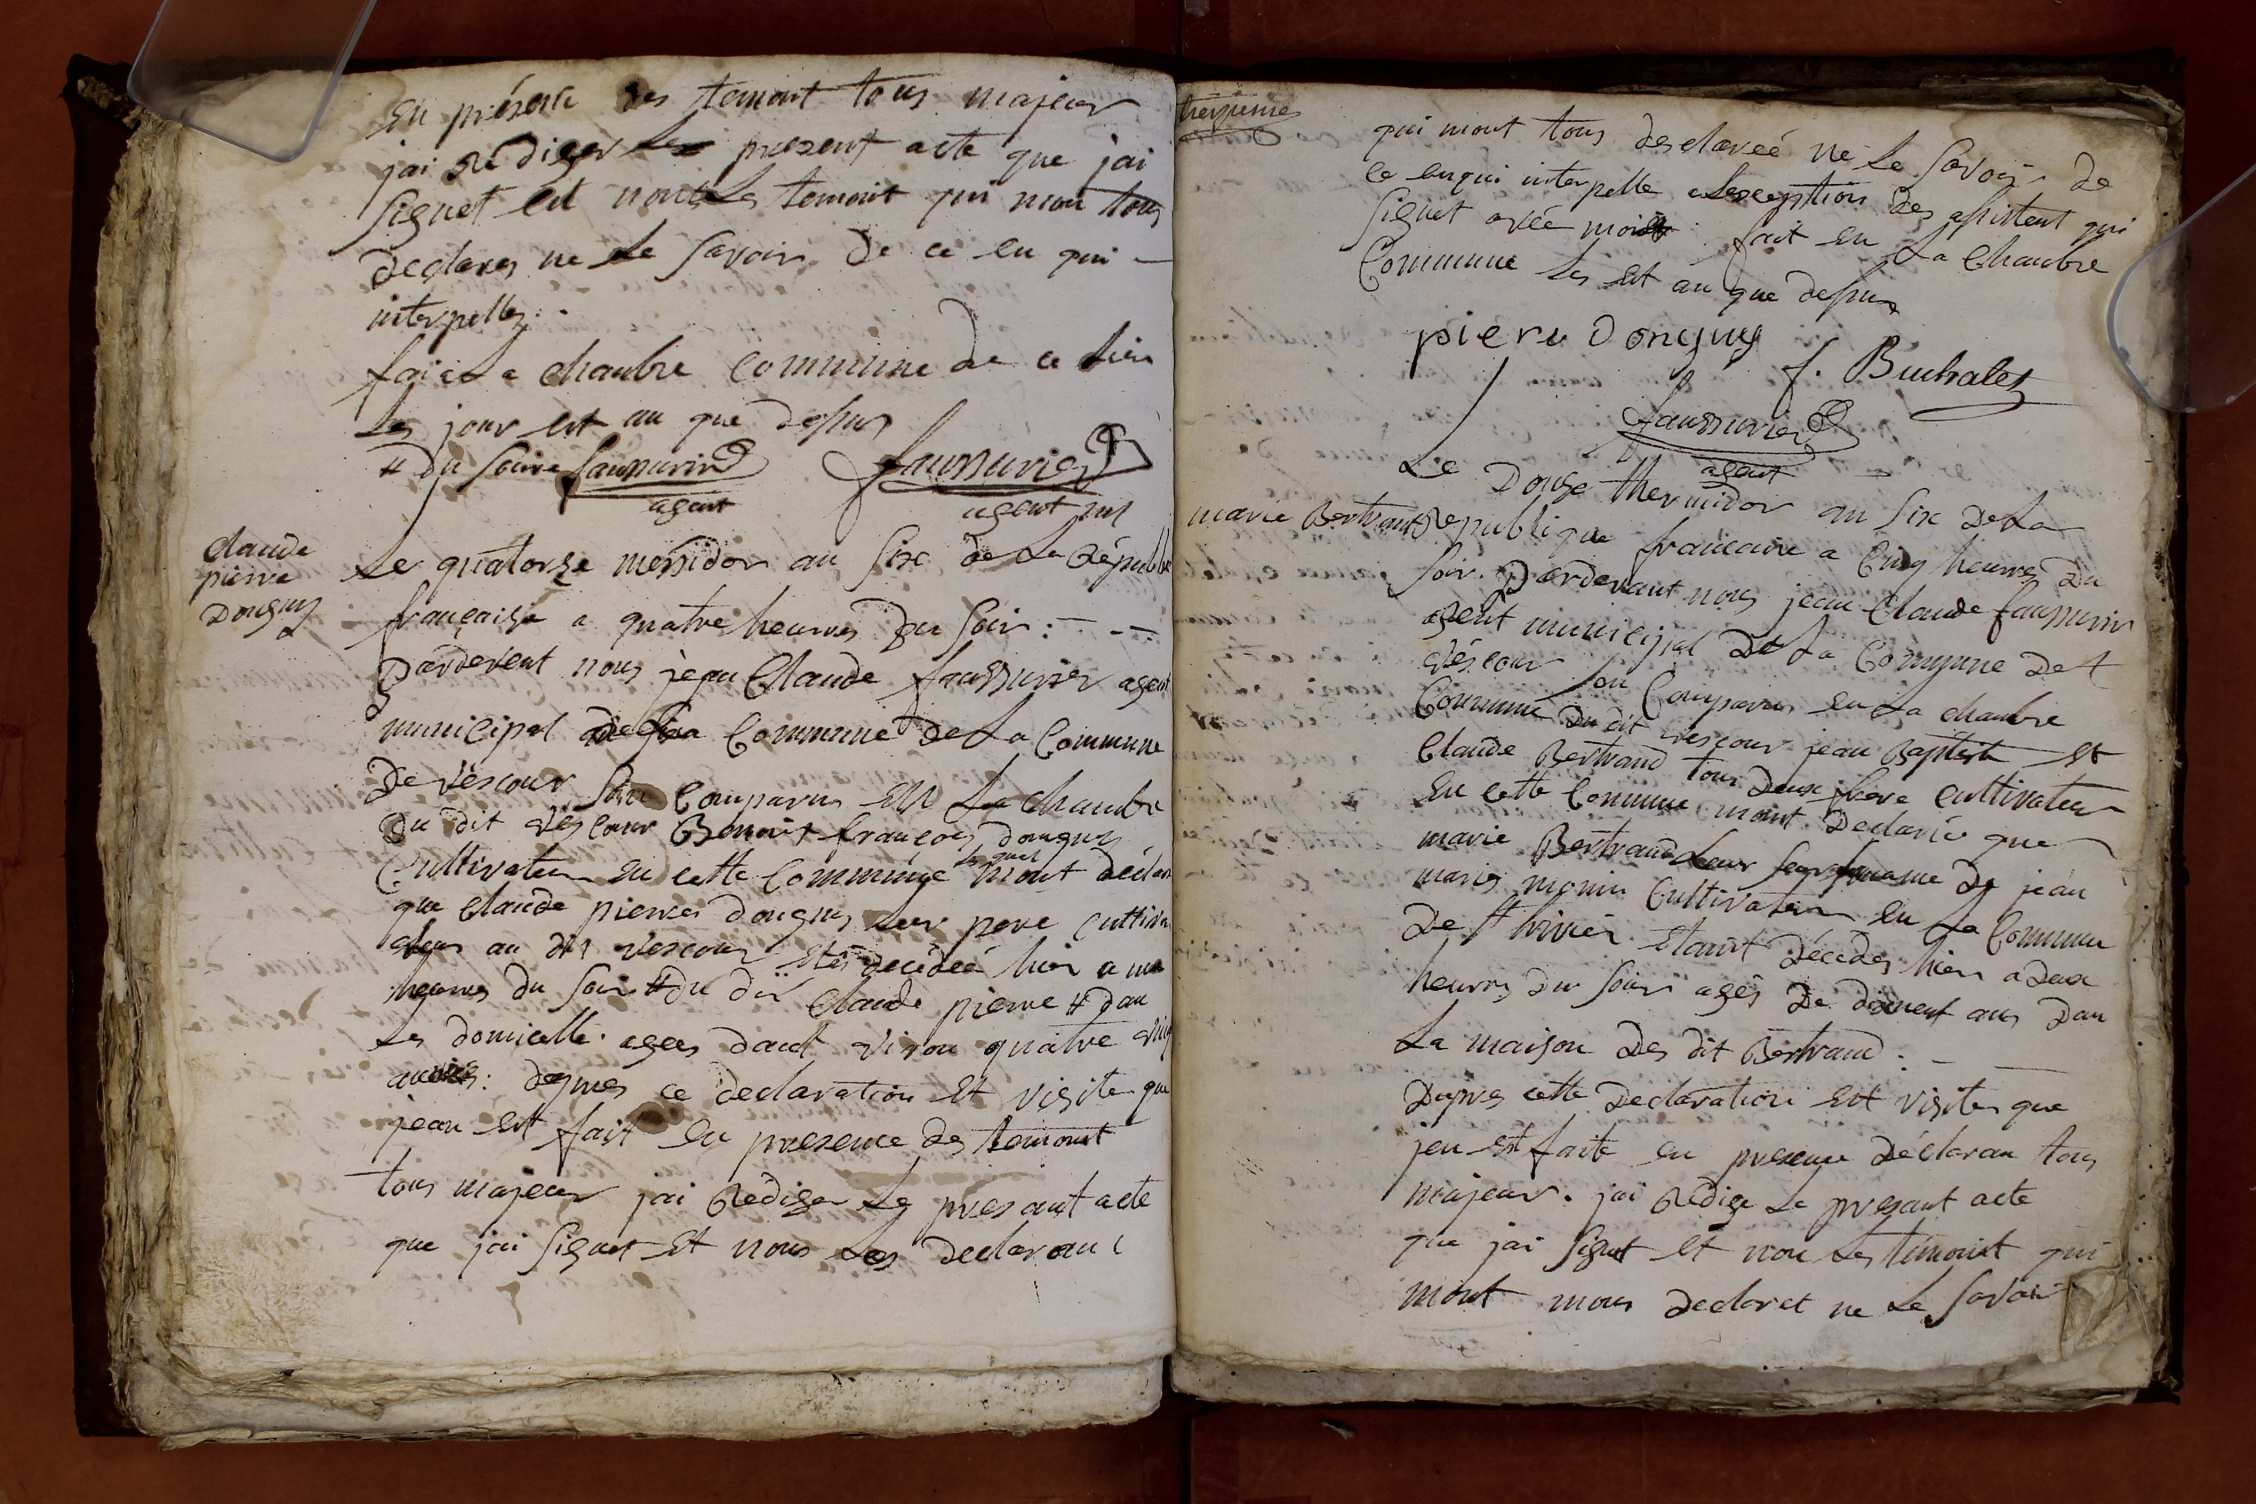 en présence des temoint tous majeur
jai rédiger le present acte que jai
signet est nont les temoint qui mon tous
declares ne le savoir de ce en qui
interpelles.
fai a la chanbre commune de ce lieu
les jour est an que dessus
# du soire faussurier faussurier
agent agent ml
claude
pierre
dougny
le quatorze messidor an six de la républi
française a quatre heures du soir : - . -
pardevent nous jean claude faussurier agent
municipal de la commune de la commune
de vescour son comparus en la chanbre
du dit vescour Benoit françois dougny
lequel
cultivateur en cette commune mont déclar
que claude pierres dougny leur pere cultiva
teurs au dit vescour etes decédéé hier a une
heures du soir # du dit claude pierre # dan
les domicille. agees dant viron quatre ving
années : depres ce declaration et visite que
jean est fait en presence des temoint
tous majeur jai rédiger le presant acte
que jai signet et nous les declaran
treizieme
qui mont tous desclareé ne le savoir de
ce enqui interpelle a lexception des assistent qui
signet avée moi fait en la chanbre
commune les est an que dessus
piere Dongny
f. Buchalet
faussurier
agent
le douze thermidor an six de la
marie Bertrand
republique francaire a cinq heures du
soir. Pardevant nous jean claude faussurier
agent municipal de la commune de
vescour son comparus en la chanbre
commune du dit vescour jean Baptist et
claude Bertrand tous deux frere cultivateur
en cette commune mont declarée que
marie Bertrand leur seur famme de jean
maries monin cultivateur en la commune
de St trivier etant décédes hier a deux
heures du soir agés de ans dan
la maison des dit Bertrand. -
depres cette declaration est visites que
jen est faite en presence déclaran tous
majeur. jai rédige le presant acte
que jai signet et non les temoint qui
mont mous declaret ne le savoir